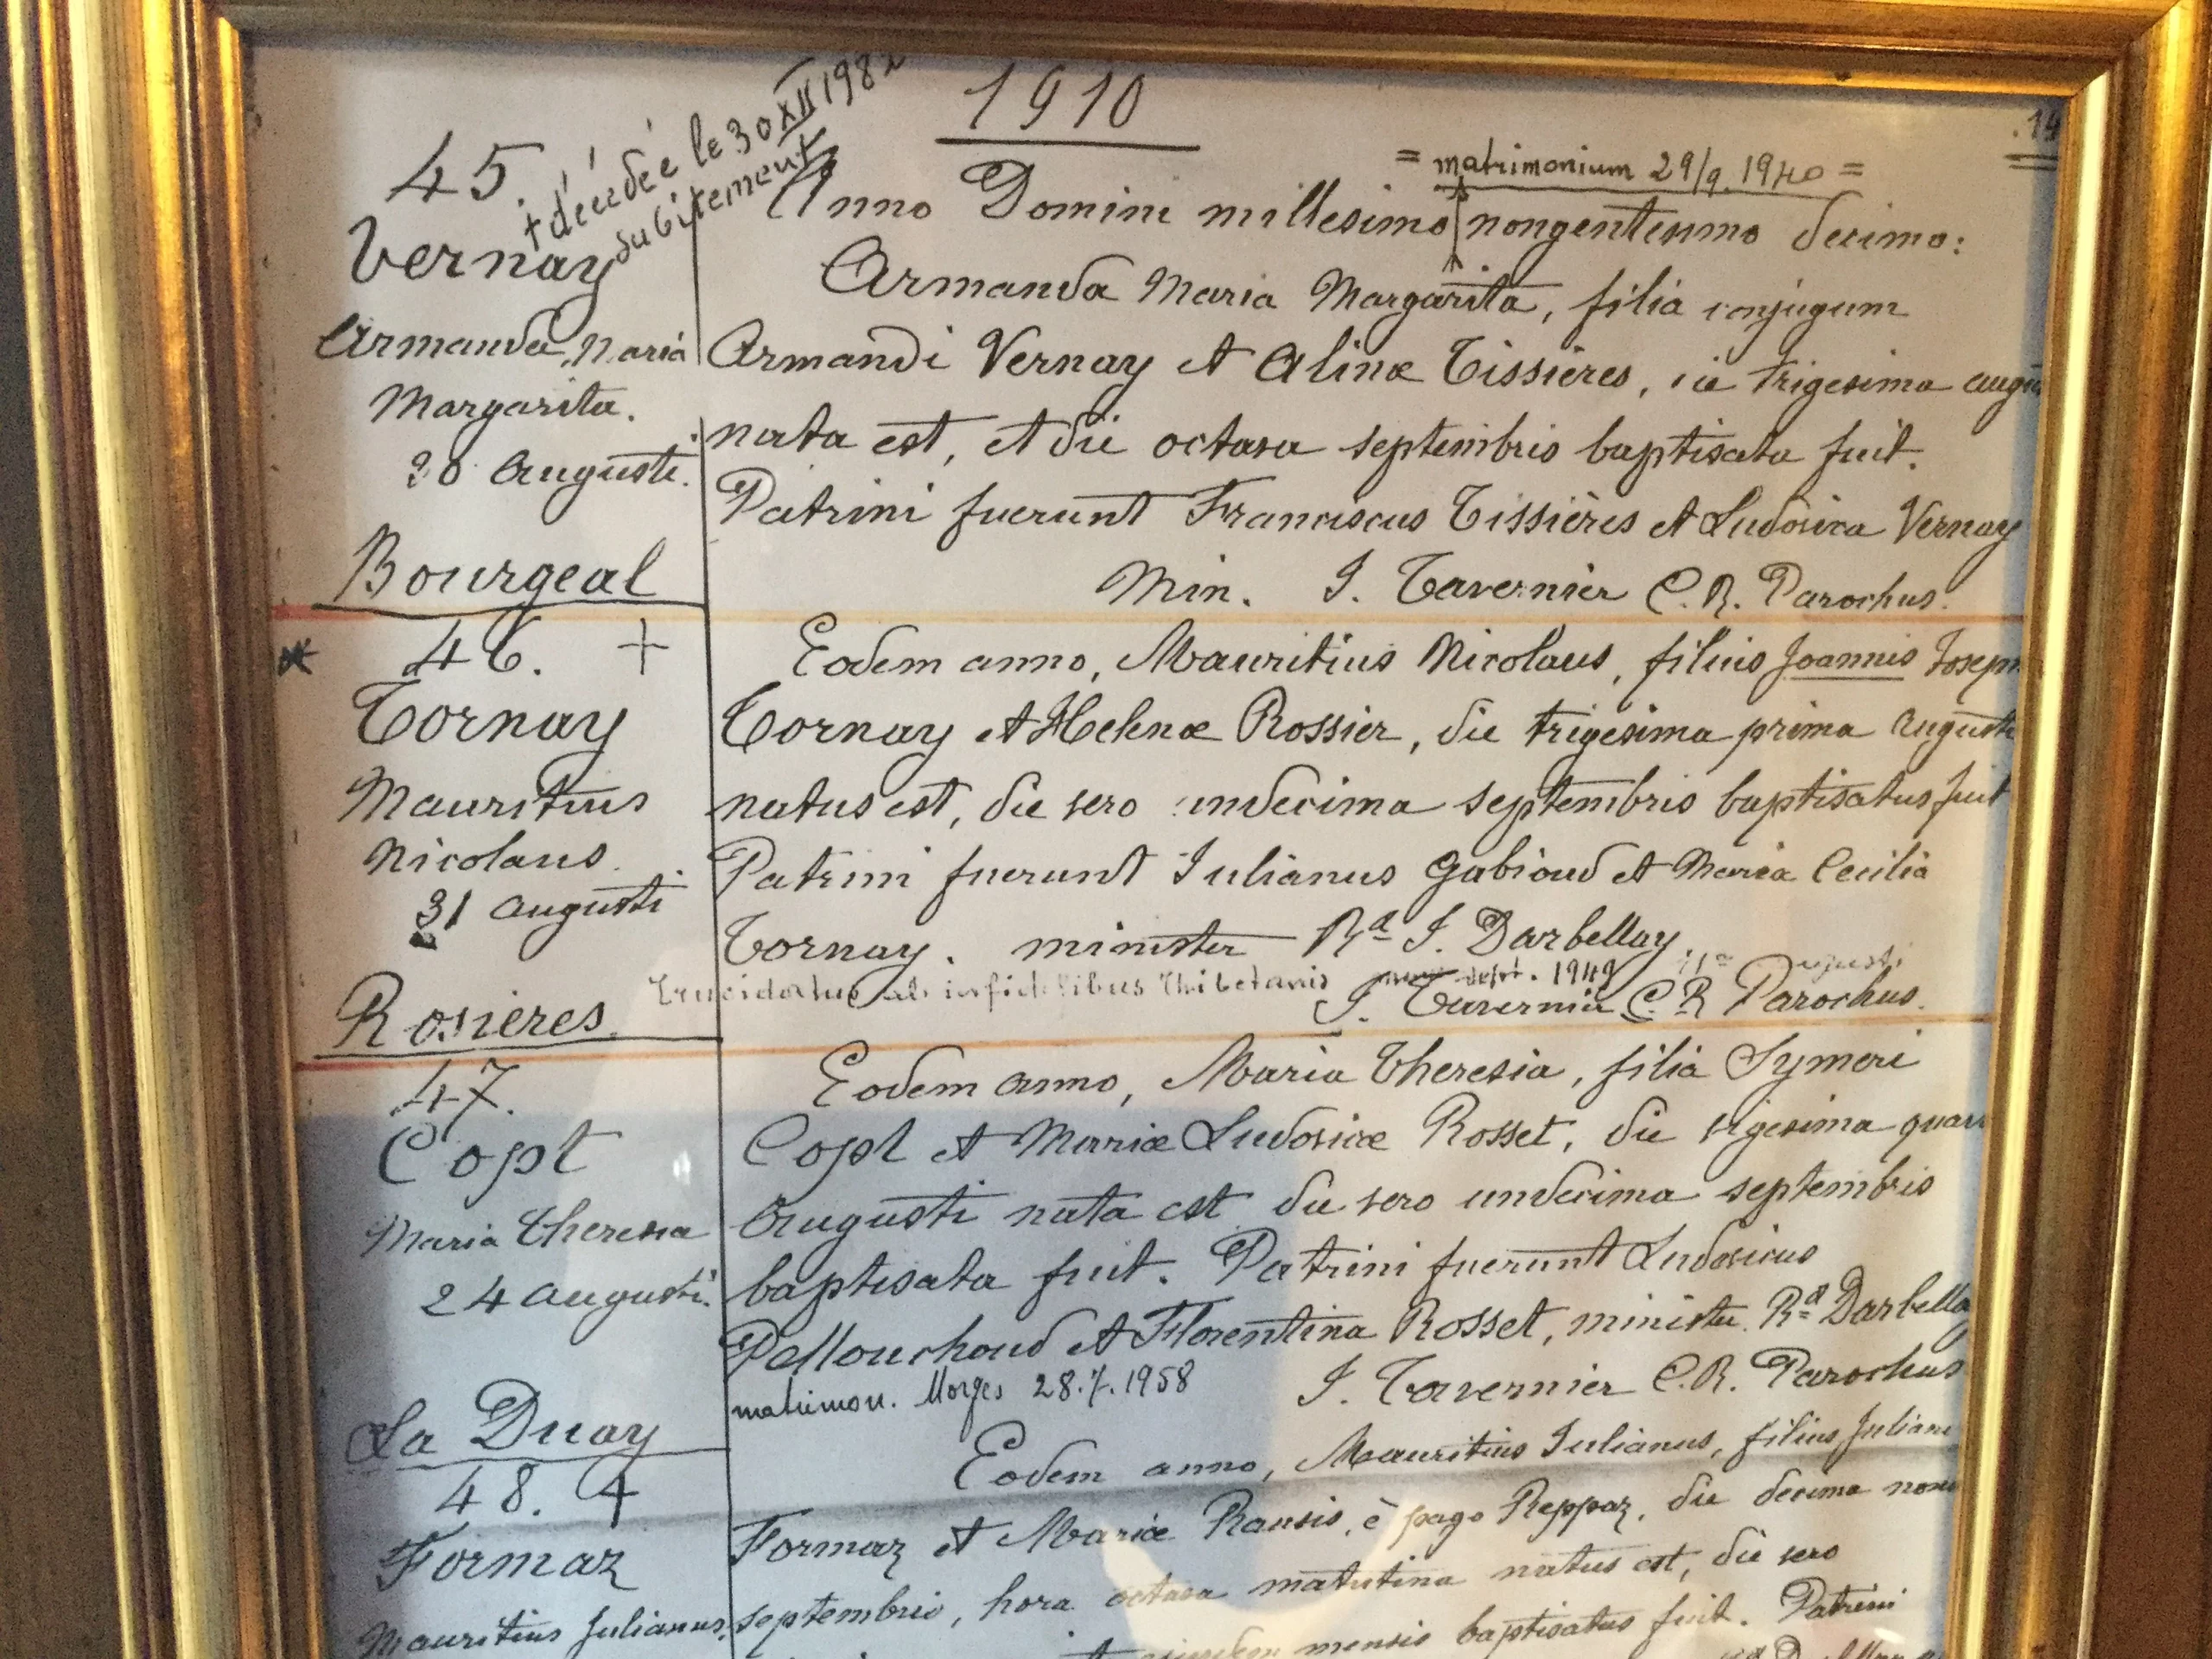 1910
45.
† décédée le 30 XII 198
subitement
Vernay
Armanda Maria
Margarita.
30 Augusti.
Bourgeal
= matrimonium 29/9. 1940 =
Anno Domini millesimo nongentesimo decimo:
Armanda Maria Margarita, filia conjugum
Armandi Vernay et Alinæ Tissières, die trigesima augu
nata est, et die octava septembris baptisata fuit.
Patrini fuerunt Franciscus Tissières et Ludovica Vernay
Min. J. Tavernier C.R. Parochus.
46. +
Tornay
Mauritius
Nicolaus.
31 augusti
Rosières
Eodem anno, Mauritius Nicolaus, filius Joannis Joseph
Tornay et Helenæ Rossier, die trigesima prima Augusti
natus est, die vero undecima septembris baptisatus fuit
Patrini fuerunt Julianus Gabioud et Maria Cecilia
Tornay. minister Rd J. Darbellay.
Trucidatus ab infidelibus Thibetanis sept. 1949
J. Tavernier C.R Parochus.
47.
Copt
Maria Theresia
24 augusti.
La Duay
Eodem anno, Maria Theresia, filia Symeri
Copt et Mariæ Ludovicæ Rosset, die vigesima quar
Augusti nata est die vero undecima septembris
baptisata fuit. Patrini fuerunt Ludovicus
Pellouchoud et Florentina Rosset, minister Rd Darbella
matrimon. Morges 28.7.1958
J. Tavernier C.R. Parochus
48. +
Formaz
Mauritius Julianus.
Eodem anno, Mauritius Julianus, filius Juliani
Formaz et Mariæ Rausis, è pago Reppaz, die decima nona
septembris, hora octava matutina natus est, die vero
mensis baptisatus fuit. Patrini